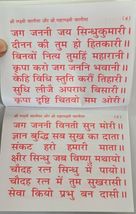 श्री लक्ष्मी चालीसा और श्री महालक्ष्मी चालीसा
जग जननी जय सिन्धुकुमारी
दीनन की तुम हो हितकारी।।
बिनवों नित्य तुमहिं महारानी
कृपा करो जग जननि भवानी।
केहि विधि स्तुति करौं तिहारी।
सुधि लीजै अपराध बिसारी।
कृपा दृष्टि चितवो मम ओरी।
श्री लक्ष्मी चालीसा और श्री महालक्ष्मी चालीसा
जग जननी विनती सुन मोरी।।
ज्ञान बुद्धि सब सुख का दाता।
संकट हरो हमारी माता।।
क्षीर सिन्धु जब विष्णु मथायो।
चौदह रत्न सिन्धु में पायो।।
चौदह रत्न में तुम सुखरासी।
सेवा कियो प्रभु बन दासी।